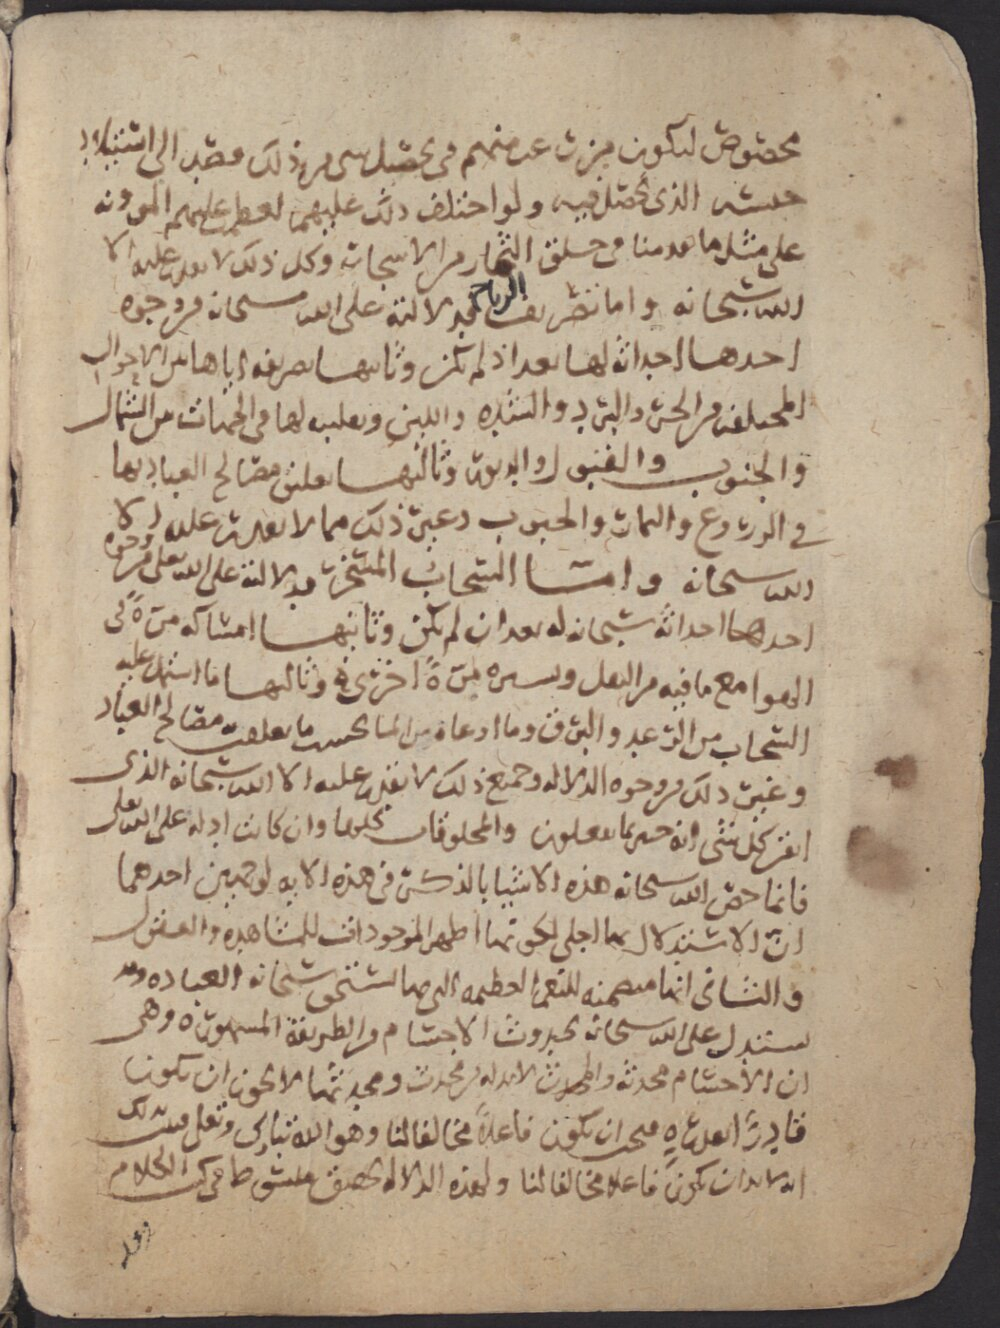 مخصوص ليكون من رغب منهم في تحصيل شي من ذلك قصد الى استنبات
جنسه الذي يحصل فيه ولو اختلف ذلك عليهم لعظمت عليهم المؤونه
على مثل ما قدمنا في خلق الثمار من الاسجات وكل ذلك لا يقدر عليه الا
الله سبحانه واما تصريف الرياح فيه دلالة على الله سبحانه من وجوه
احدها احداثه لها بعد اذ لم تكن وثانيها تصريفه اياها من الاحوال
المختلفه من الحر والبرد والشده واللين وتقليبه لها في الجهات من الشمال
والجنوب والقبول والدبور وثالثها تعلق مصالح العباد بها
في الزروع والثمار والحبوب وغير ذلك مما لا يقدر عليه الا
الله سبحانه وامـا السحاب المسخر فدلالته على الله تعلى من وجوه
احدها احداثه سبحانه له بعد ان لم يكن وثانيها امساكه مرة في
الهوا مع ما فيه من الثقل وسيره مرة اخرى وثالثها ما اشتمل عليه
السحاب من الرعد والبرق وما اودعه من الما بحسب ما تعلقت مصالح العباد
وغير ذلك من وجوه الدلاله وجميع ذلك لا يقدر عليه الا الله سبحانه الذي
اتقن كل شي انه خبير بما تفعلون والمخلوقات كلها وان كانت ادله على الله تعلى
فانما خص الله سبحانه هذه الاشيا بالذكر في هذه الايه لوجهين احدهما
ان الاستدلال بها اجلى لكونها اظهر الموجودات للمشاهده والعقل
والثاني انها متضمنه للنعم العظيمه التي بها استحق سبحانه العباده وقد
يستدل على الله سبحانه بحدوث الاجسام من الطريقة المشهوره وهي
ان الاجسام محدثه والمحدث لا بد له من محدث ومحدثها لا يجوز ان يكون
قادرا بقدرة فيجب ان يكون فاعلا مخالفا لنا وهو الله تبارك وتعلى فثبت بذلك
انه لا بد ان يكون فاعلا مخالفا لنا ولهذه الدلاله تحقيق مبسوط في كتب الكلام